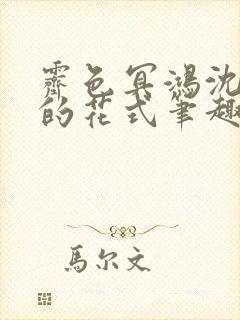 霽色冥鴻沈
的花式筆趣
馬尔文